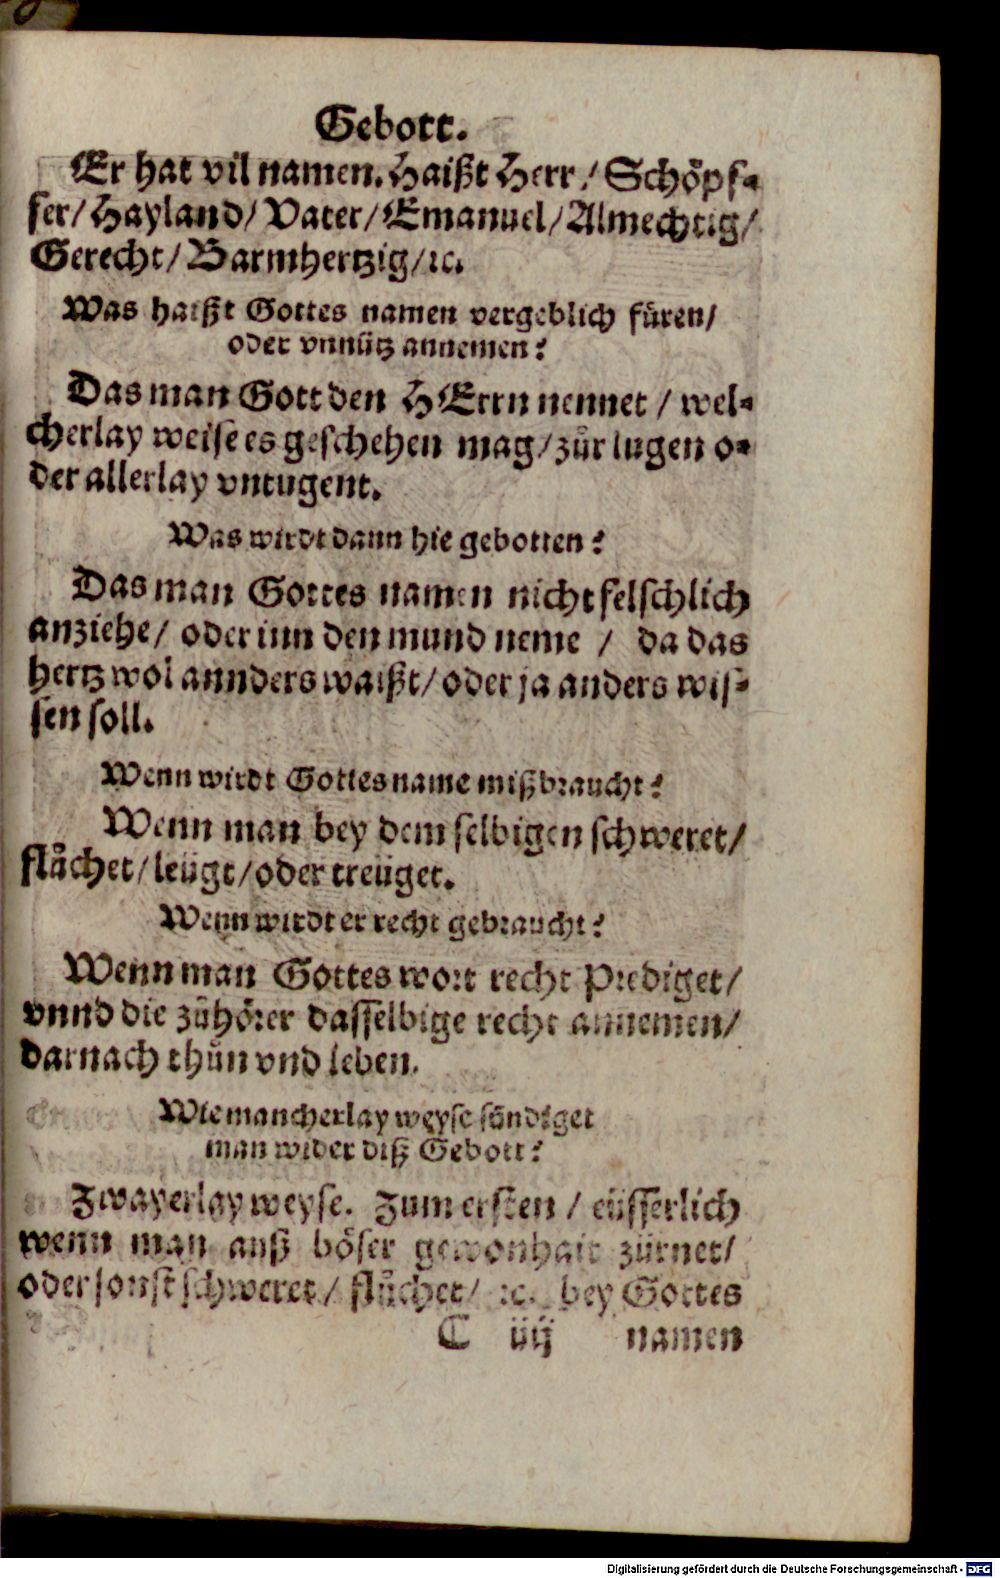 Gebott.
Er hat vil namen. Haißt Herr / Schöpf-
fer / Hayland / Vater / Emanuel / Almechtig /
Gerecht / Barmhertzig / ꝛc.
Was haißt Gottes namen vergeblich füren /
oder vnnütz annemen?
Das man Gott den HErrn nennet / wel-
cherlay weise es geschehen mag / zůr lugen o-
der allerlay vntugent.
Was wirdt dann hie gebotten?
Das man Gottes namen nicht felschlich
anziehe / oder inn den mund neme / da das
hertz wol annders waißt / oder ja anders wis-
sen soll.
Wenn wirdt Gottes name mißbraucht?
Wenn man bey dem selbigen schweret /
flůchet / leügt / oder treüget.
Wenn wirdt er recht gebraucht?
Wenn man Gottes wort recht Prediget /
vnnd die zůhörer dasselbige recht annemen /
darnach thůn vnd leben.
Wie mancherlay weyse sündiget
man wider diß Gebott?
Zwayerlay weyse. Zum ersten / eüsserlich
wenn man auß böser gewonhait zürnet /
oder sonst schweret / flůchet / ꝛc. bey Gottes
C iiij namen
Digitalisierung gefördert durch die Deutsche Forschungsgemeinschaft - DFG